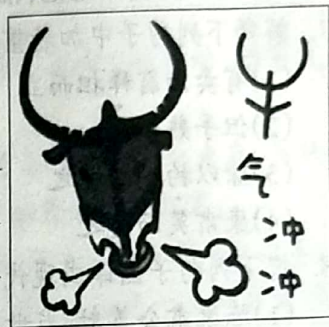 气
冲
冲